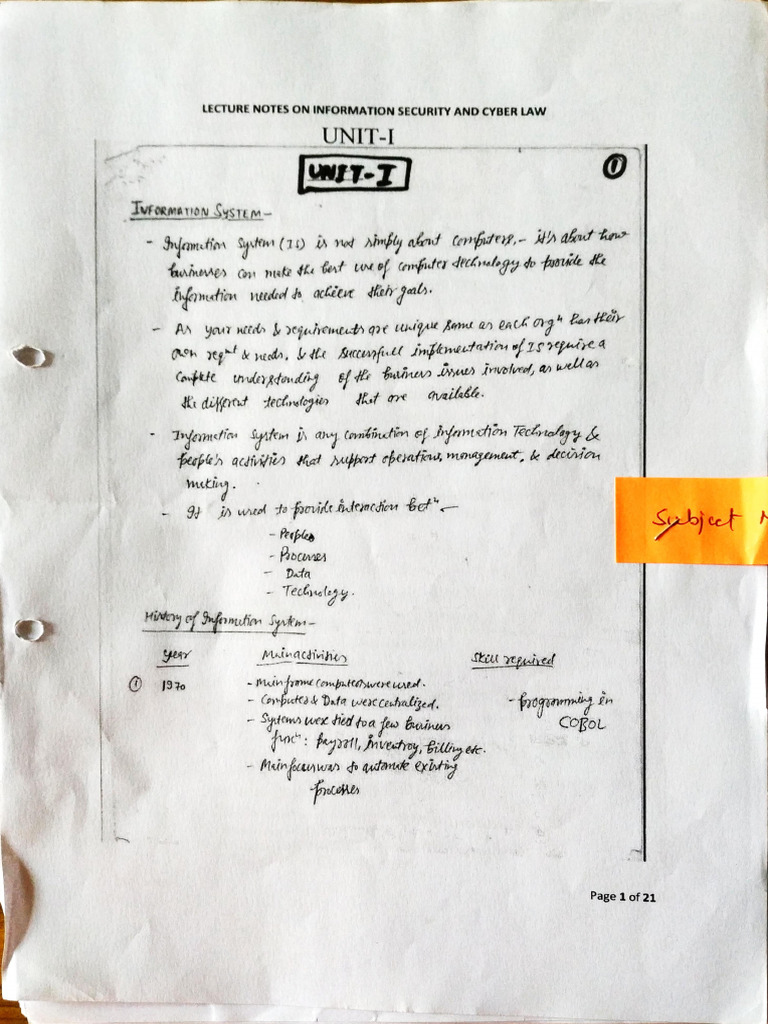 LECTURE NOTES ON INFORMATION SECURITY AND CYBER LAW
UNIT-I
UNIT-I
1
INFORMATION SYSTEM-
- Information System (IS) is not simply about computers,- it's about how
businesses can make the best use of computer technology to provide the
information needed to achieve their goals.
- As your needs & requirements are unique same as each orgn has their
own reqmt & needs, & the successfull implementation of IS require a
complete understanding of the business issues involved, as well as
the different technologies that are available.
- Information System is any combination of Information Technology &
people's activities that support operations, management, & decision
making.
- It is used to provide interaction betn -
- Peoples
- Processes
- Data
- Technology.
Subject
History of Information System-
Year Main activities Skill required
1 1970 - Mainframe computers were used.
- Computer & Data were centralized.
- Programming in
COBOL
- Systems were tied to a few business
funcn: payroll, inventroy, billing etc.
- Main focus was to automate existing
processes
Page 1 of 21